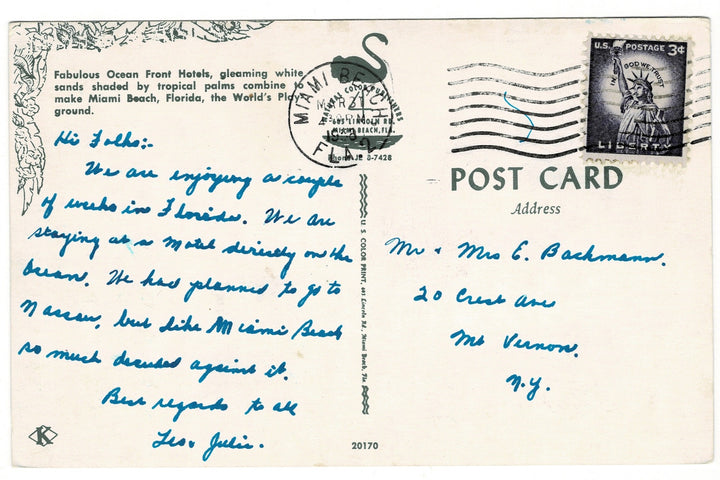 Fabulous Ocean Front Hotels, gleaming white
sands shaded by tropical palms combine to
make Miami Beach, Florida, the World's Play-
ground.
Hi Folks:-
We are enjoying a couple
of weeks in Florida. We are
staying at a Motel directly on the
Ocean. We had planned to go to
Nassau, but like Miami Beach
so much decided against it.
Best regards to all
Leo & Julie.
K
MIAMI BEACH
MAR 21
FLA.
COLOR PUBLISHERS
LINCOLN RD.
MIAMI BEACH, FLA.
Phone JE 8-7428
U.S. COLOR PRINT, Lincoln Rd., Miami Beach, Fla.
20170
U.S. POSTAGE 3¢
IN GOD WE TRUST
LIBERTY
POST CARD
Address
Mr & Mrs E. Bachmann.
20 Crest Ave
Mt Vernon.
N.Y.